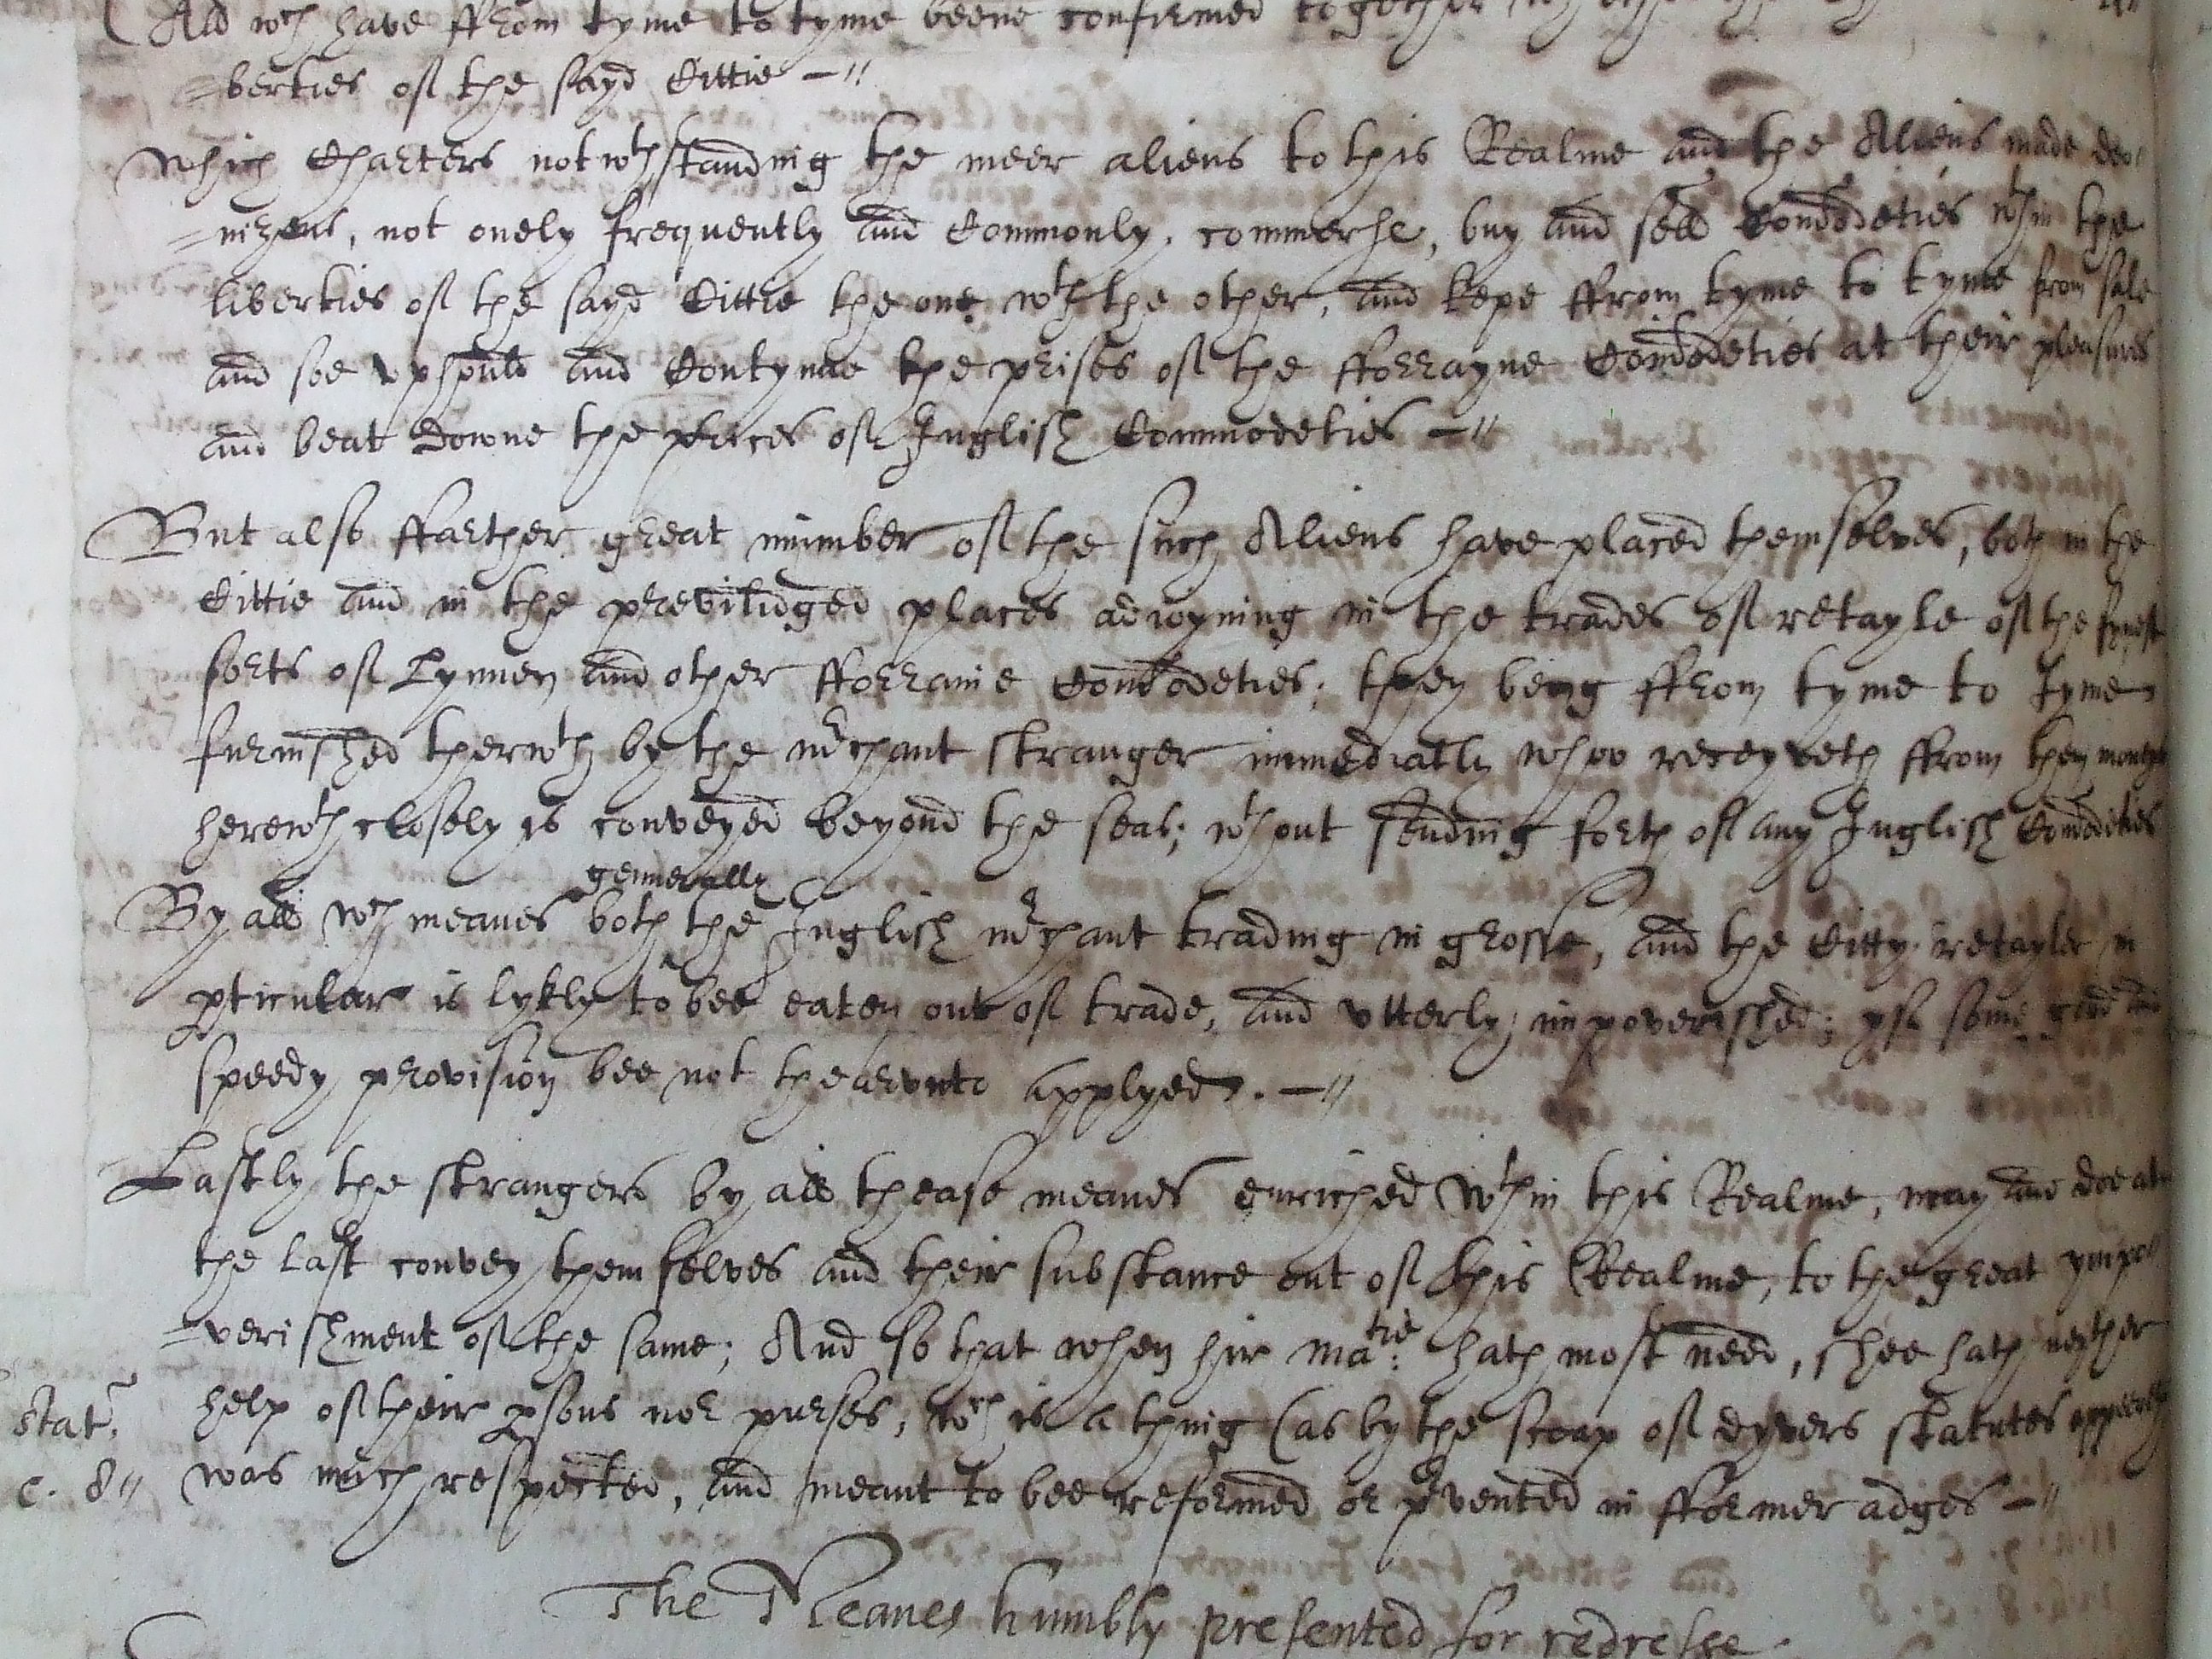 And wch have ffrom tyme to tyme beene confirmed together
=berties of the sayd Cittie —"
Which Charters notwthstanding the meer aliens to this Realme and the Aliens made den
=nizens, not onely frequently and Commonly, commerse, buy and sell Comodeties wthin the
liberties of the sayd Cittie the one wth the other, and kepe ffrom tyme to tyme from sale
and soe vphould and Contynue the prises of the fforrayne Comodeties at their pleasures
and beat downe the prices of Inglish Commodeties —"
But also ffarther great nnumber of the such Aliens have placed themselves, both in the
Cittie and in the previlidged places adioyning in the trades of retayle of the fynest
sorts of Lynnen and other fforraine Comodeties; they being ffrom tyme to tyme
furnished therwth by the mrchant stranger immediatly whoo receyveth ffrom them
herewth closely is conveyed beyond the seas; wthout sending forth of any Inglish Comodeties
gennerally
By all wch meanes both the Inglish mrchant trading in grosse, and the Citty retayler in
pticular is lykly to bee eaten out of trade, and vtterly impoverished; yf some good and
speedy provision bee not thearvnto applyed. —"
Lastly the strangers by all thease meanes enriched wthin this Realme, may and doe at
the last convey themselves and their substance out of this Realme, to the great ympo"
=verishment of the same; And so that when hir matie: hath most need, shee hath neyther
help of their psons nor purses, wch is a thing (as by the scoap of dyvers statutes appeereth
Stat.
was much respected, and meant to bee reformed or prvented in fformer adges —"
c. 8"
The Meanes humbly presented for redresse.